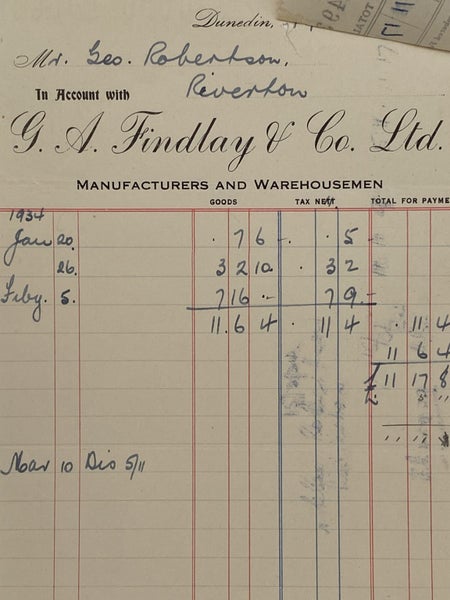 Dunedin,
Mr. Geo. Robertson,
In Account with Riverton
G. A. Findlay & Co. Ltd.
MANUFACTURERS AND WAREHOUSEMEN
GOODS TAX NETT. TOTAL FOR PAYME
1934
Jan 20. . 7 6 - . . 5 -
26. 3 2 10. . 3 2
Feby. 5. 7 16 . - 7 9. -
11. 6 4 . 11 4 . 11 4
11 6 4
£ 11 17 8
Mar 10 Dis 5/11